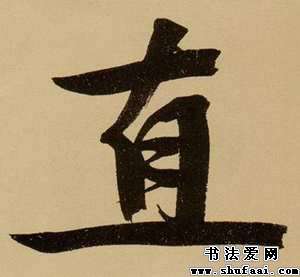 直
书法爱网
www.shufaai.com